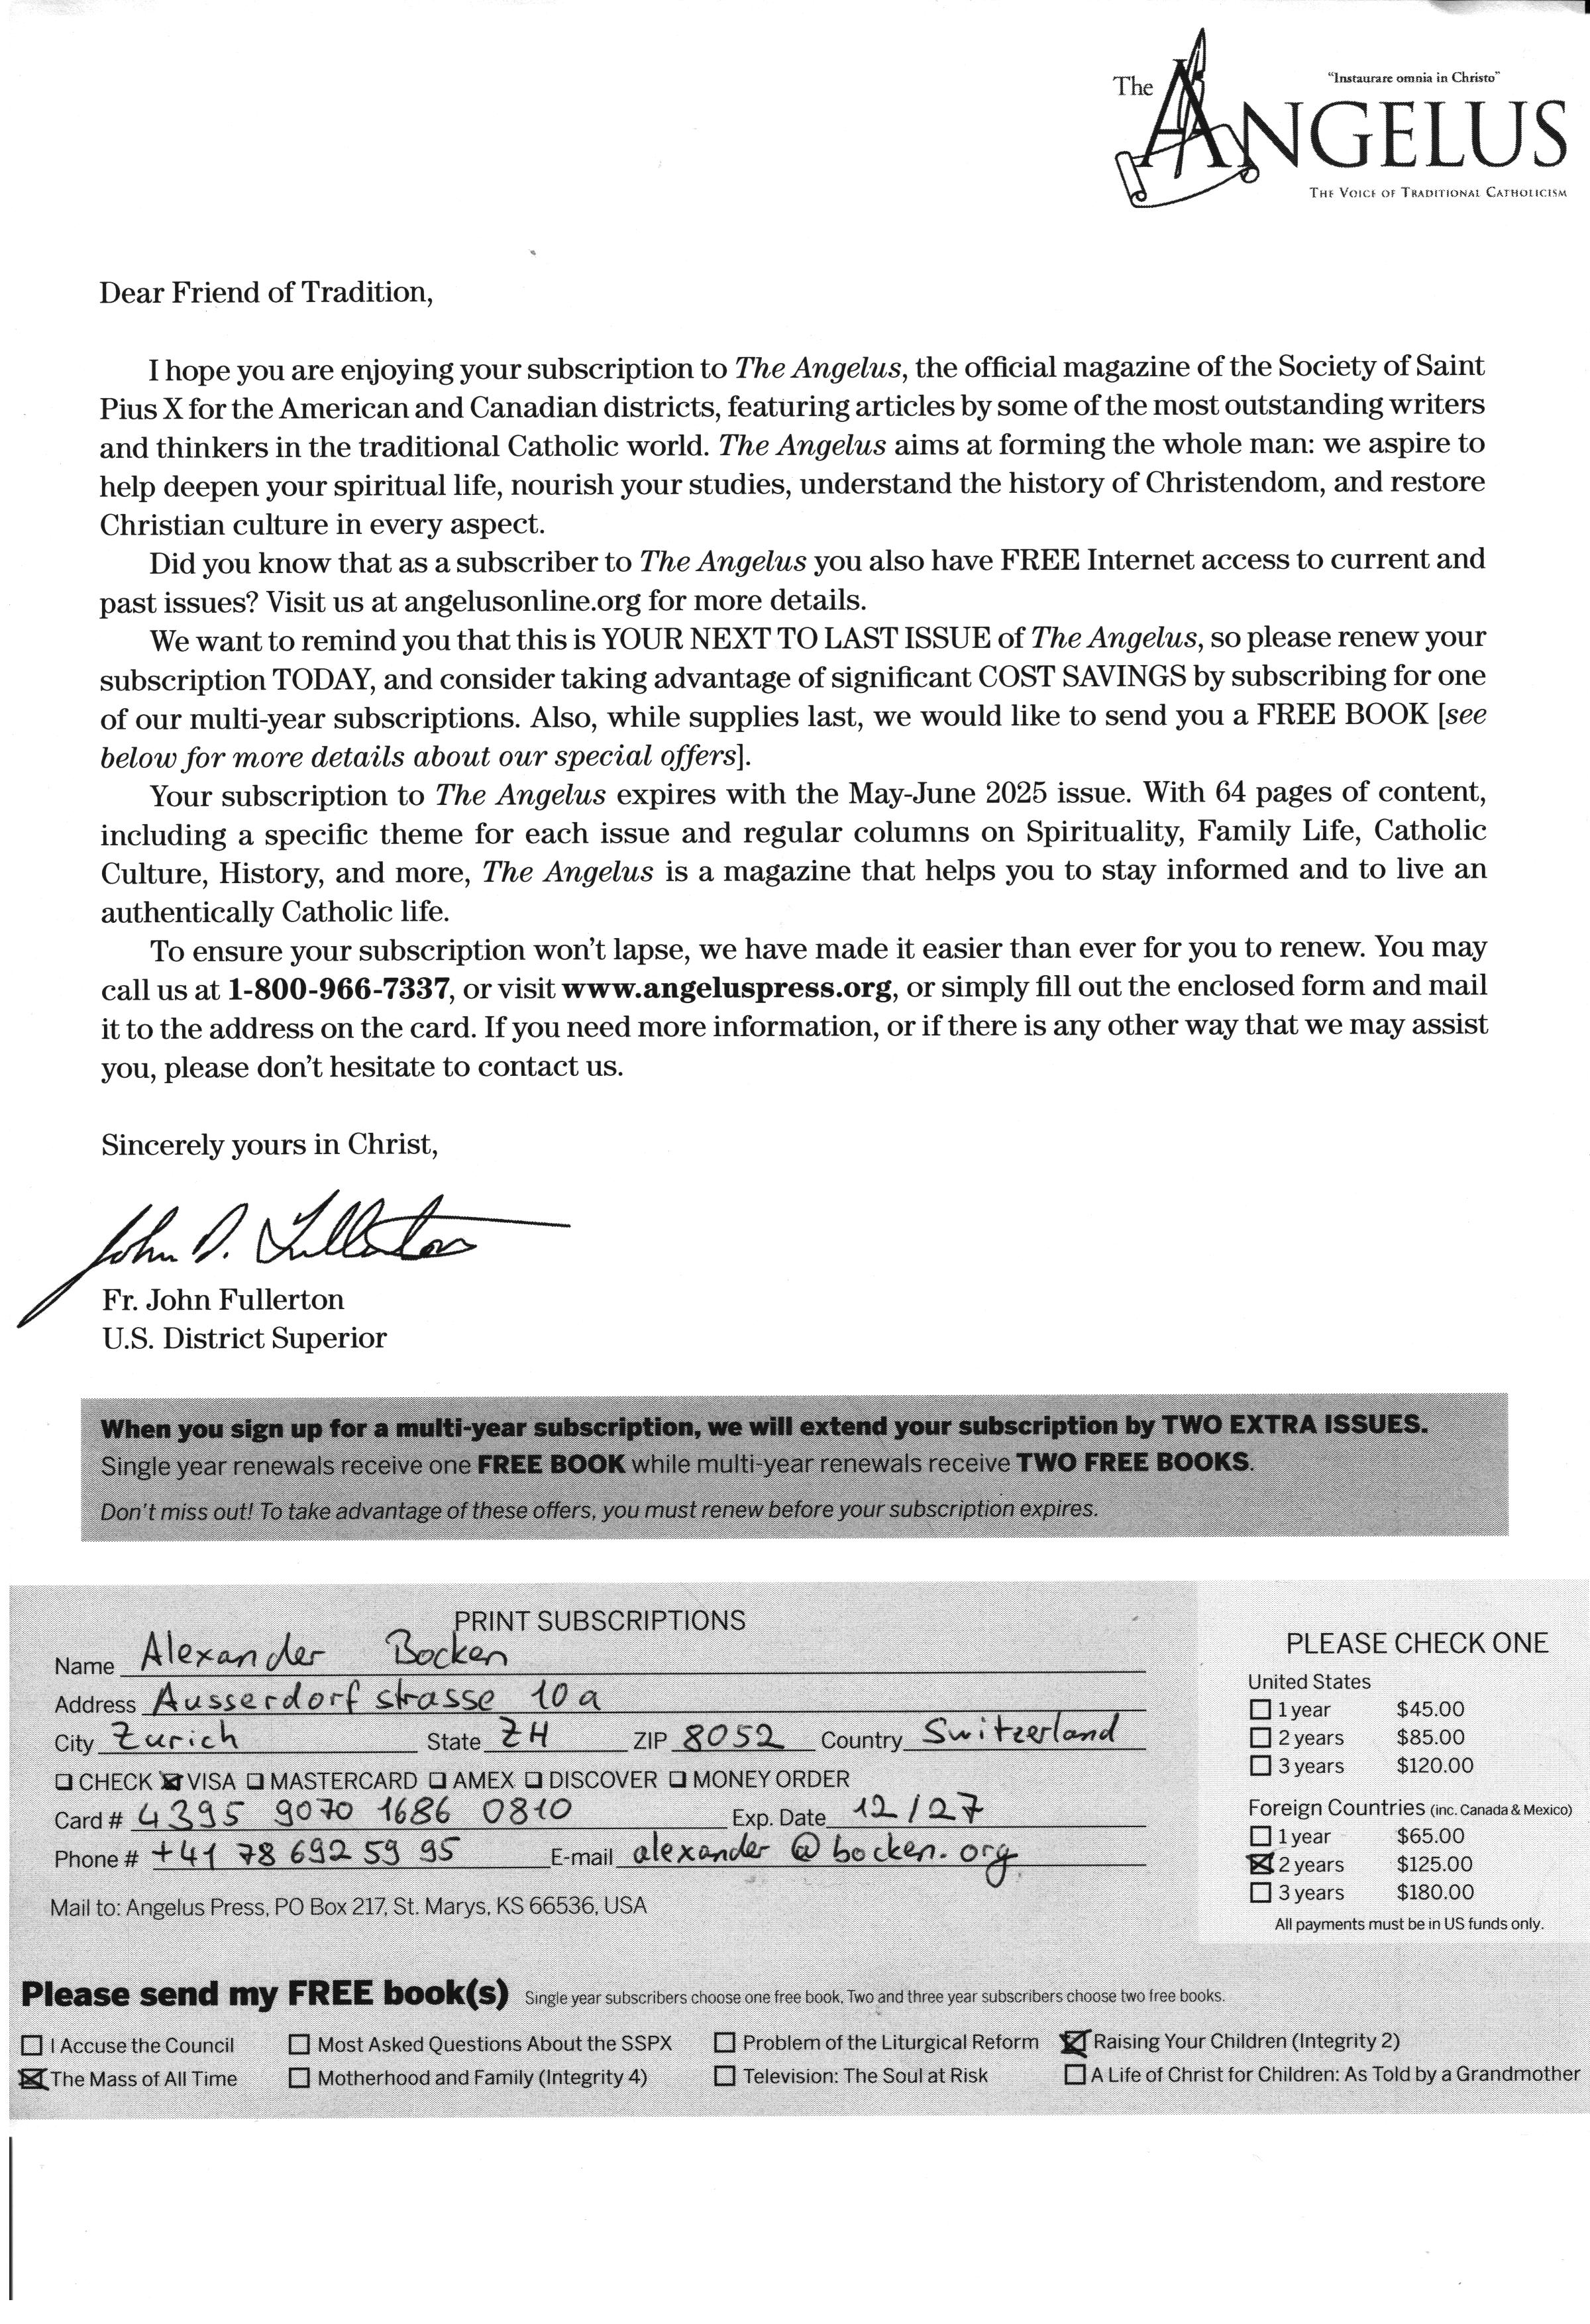 The
"Instaurare omnia in Christo"
ANGELUS
THE VOICE OF TRADITIONAL CATHOLICISM
Dear Friend of Tradition,
I hope you are enjoying your subscription to The Angelus, the official magazine of the Society of Saint
Pius X for the American and Canadian districts, featuring articles by some of the most outstanding writers
and thinkers in the traditional Catholic world. The Angelus aims at forming the whole man: we aspire to
help deepen your spiritual life, nourish your studies, understand the history of Christendom, and restore
Christian culture in every aspect.
Did you know that as a subscriber to The Angelus you also have FREE Internet access to current and
past issues? Visit us at angelusonline.org for more details.
We want to remind you that this is YOUR NEXT TO LAST ISSUE of The Angelus, so please renew your
subscription TODAY, and consider taking advantage of significant COST SAVINGS by subscribing for one
of our multi-year subscriptions. Also, while supplies last, we would like to send you a FREE BOOK [see
below for more details about our special offers].
Your subscription to The Angelus expires with the May-June 2025 issue. With 64 pages of content,
including a specific theme for each issue and regular columns on Spirituality, Family Life, Catholic
Culture, History, and more, The Angelus is a magazine that helps you to stay informed and to live an
authentically Catholic life.
To ensure your subscription won't lapse, we have made it easier than ever for you to renew. You may
call us at 1-800-966-7337, or visit www.angeluspress.org, or simply fill out the enclosed form and mail
it to the address on the card. If you need more information, or if there is any other way that we may assist
you, please don't hesitate to contact us.
Sincerely yours in Christ,
John D. Fullerton
Fr. John Fullerton
U.S. District Superior
When you sign up for a multi-year subscription, we will extend your subscription by TWO EXTRA ISSUES.
Single year renewals receive one FREE BOOK while multi-year renewals receive TWO FREE BOOKS.
Don't miss out! To take advantage of these offers, you must renew before your subscription expires.
PRINT SUBSCRIPTIONS
Name Alexander Bocken
Address Ausserdorfstrasse 10a
City Zurich State ZH ZIP 8052 Country Switzerland
☐ CHECK ☒ VISA ☐ MASTERCARD ☐ AMEX ☐ DISCOVER ☐ MONEY ORDER
Card # 4395 9070 1686 0810 Exp. Date 12/27
Phone # +41 78 692 59 95 E-mail alexander@bocken.org
Mail to: Angelus Press, PO Box 217, St. Marys, KS 66536, USA
PLEASE CHECK ONE
United States
☐ 1 year $45.00
☐ 2 years $85.00
☐ 3 years $120.00
Foreign Countries (inc. Canada & Mexico)
☐ 1 year $65.00
☒ 2 years $125.00
☐ 3 years $180.00
All payments must be in US funds only.
Please send my FREE book(s) Single year subscribers choose one free book, Two and three year subscribers choose two free books.
☐ I Accuse the Council ☐ Most Asked Questions About the SSPX ☐ Problem of the Liturgical Reform ☒ Raising Your Children (Integrity 2)
☒ The Mass of All Time ☐ Motherhood and Family (Integrity 4) ☐ Television: The Soul at Risk ☐ A Life of Christ for Children: As Told by a Grandmother